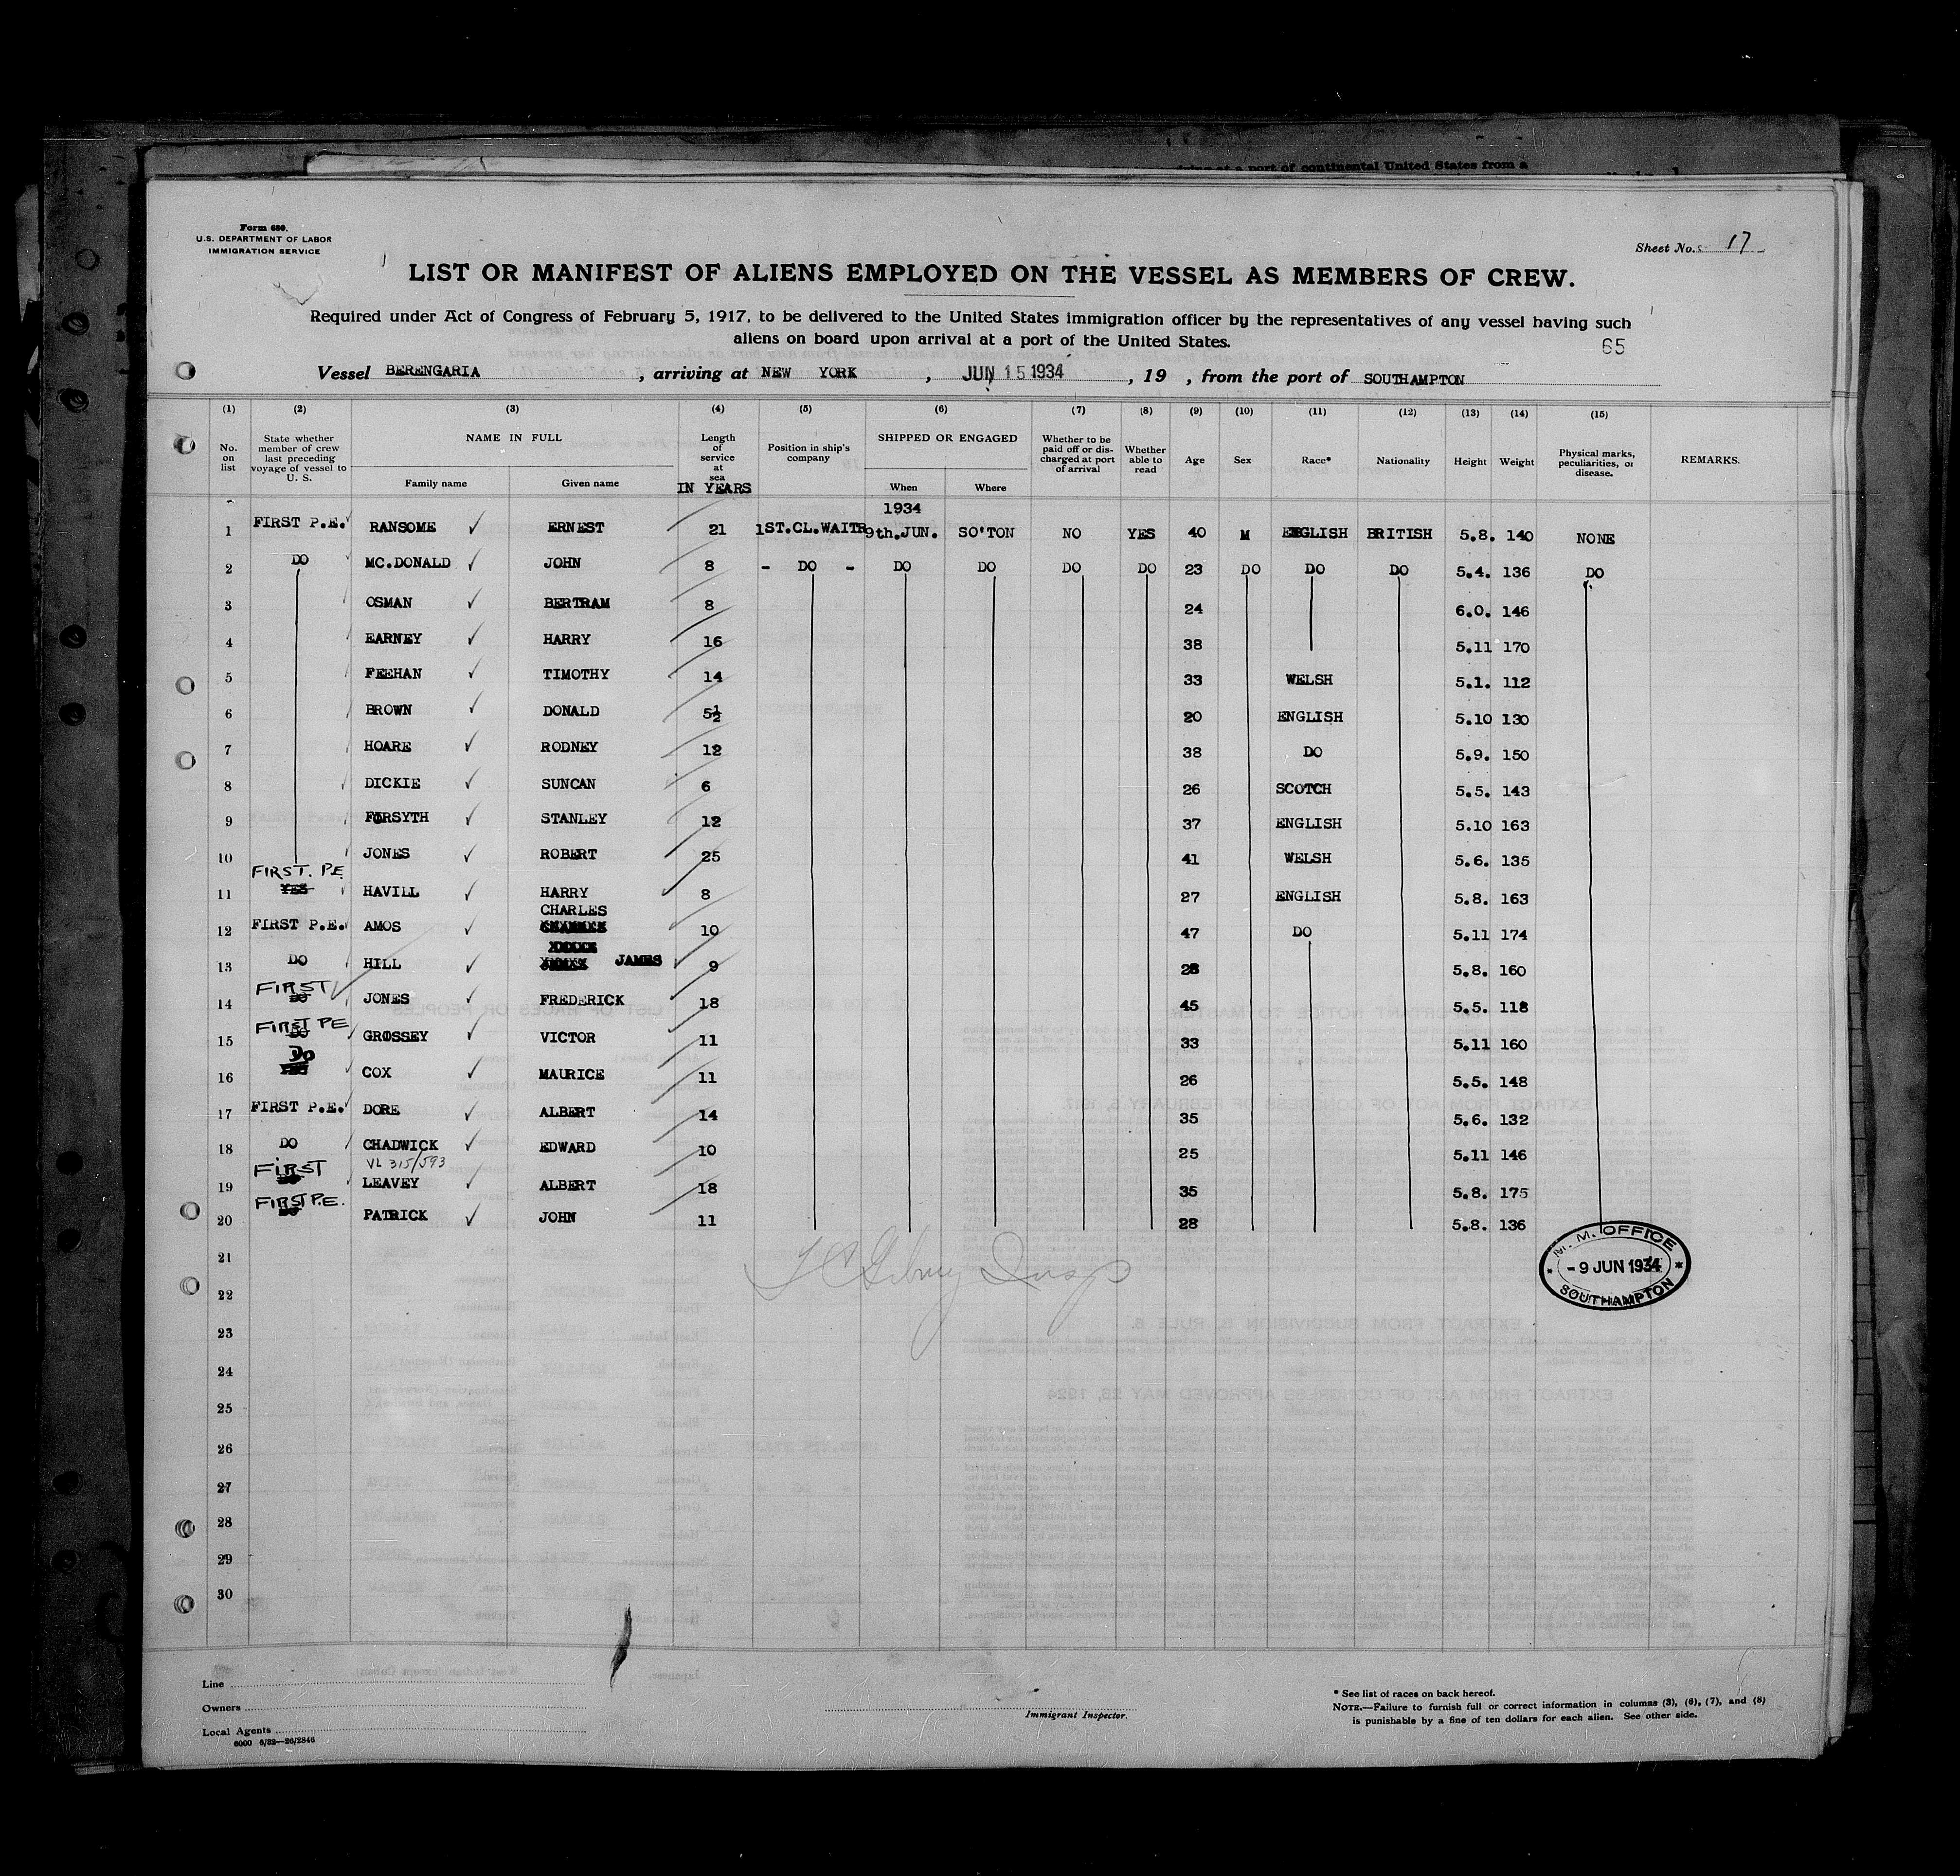 arriving at a port of continental United States from a
Form 680.
U.S. DEPARTMENT OF LABOR
IMMIGRATION SERVICE
Sheet No. 17
LIST OR MANIFEST OF ALIENS EMPLOYED ON THE VESSEL AS MEMBERS OF CREW.
Required under Act of Congress of February 5, 1917, to be delivered to the United States immigration officer by the representatives of any vessel having such
aliens on board upon arrival at a port of the United States.
65
Vessel BERENGARIA, arriving at NEW YORK, JUN 15 1934, 19 , from the port of SOUTHAMPTON
(1) (2) (3) (4) (5) (6) (7) (8) (9) (10) (11) (12) (13) (14) (15)
No. on list State whether member of crew last preceding voyage of vessel to U. S. NAME IN FULL Family name Given name Length of service at sea IN YEARS Position in ship's company SHIPPED OR ENGAGED When Where Whether to be paid off or discharged at port of arrival Whether able to read Age Sex Race* Nationality Height Weight Physical marks, peculiarities, or disease. REMARKS.
1934
1 FIRST P.E. RANSOME ERNEST 21 1ST.CL.WAITR 9th.JUN. SO'TON NO YES 40 M ENGLISH BRITISH 5.8. 140 NONE
2 DO MC.DONALD JOHN 8 - DO - DO DO DO DO 23 DO DO DO 5.4. 136 DO
3 OSMAN BERTRAM 8 24 6.0. 146
4 EARNEY HARRY 16 38 5.11 170
5 FEEHAN TIMOTHY 14 33 WELSH 5.1. 112
6 BROWN DONALD 5½ 20 ENGLISH 5.10 130
7 HOARE RODNEY 12 38 DO 5.9. 150
8 DICKIE SUNCAN 6 26 SCOTCH 5.5. 143
9 FORSYTH STANLEY 12 37 ENGLISH 5.10 163
10 JONES ROBERT 25 41 WELSH 5.6. 135
FIRST. P.E
11 YES HAVILL HARRY 8 27 ENGLISH 5.8. 163
CHARLES
12 FIRST P.E. AMOS 10 47 DO 5.11 174
13 DO HILL JAMES 9 28 5.8. 160
FIRST
14 DO JONES FREDERICK 18 45 5.5. 118
FIRST PE
15 DO GROSSEY VICTOR 11 33 5.11 160
DO
16 YES COX MAURICE 11 26 5.5. 148
17 FIRST P.E. DORE ALBERT 14 35 5.6. 132
18 DO CHADWICK EDWARD 10 25 5.11 146
FIRST VL 315/593
19 LEAVEY ALBERT 18 35 5.8. 175
FIRST P.E.
20 DO PATRICK JOHN 11 28 5.8. 136
21
22
23
24
25
26
27
28
29
30
M. M. OFFICE
- 9 JUN 1934
SOUTHAMPTON
Line
Owners
Local Agents
6000 6/32—26/2846
Immigrant Inspector.
* See list of races on back hereof.
NOTE.—Failure to furnish full or correct information in columns (3), (6), (7), and (8)
is punishable by a fine of ten dollars for each alien. See other side.